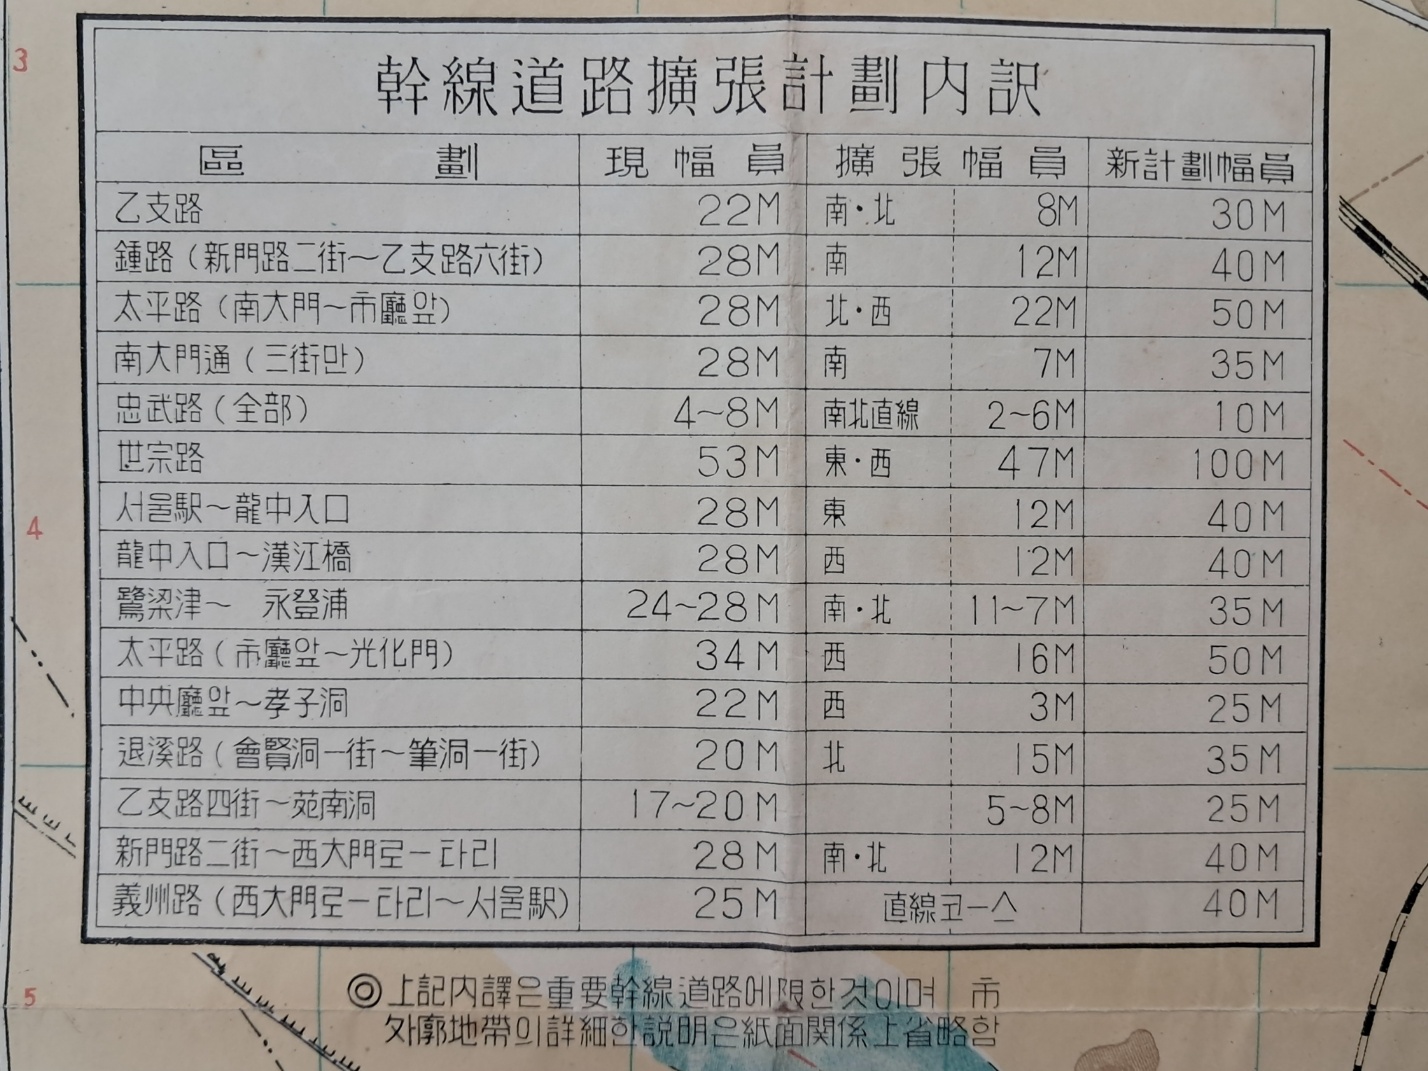 3
幹線道路擴張計劃内訳
區劃 現幅員 擴張幅員 新計劃幅員
乙支路 22M 南・北 8M 30M
鍾路(新門路二街~乙支路六街) 28M 南 12M 40M
太平路(南大門~市廳앞) 28M 北・西 22M 50M
南大門通(三街만) 28M 南 7M 35M
忠武路(全部) 4~8M 南北直線 2~6M 10M
世宗路 53M 東・西 47M 100M
서울駅~龍中入口 28M 東 12M 40M
龍中入口~漢江橋 28M 西 12M 40M
鷺梁津~ 永登浦 24~28M 南・北 11~7M 35M
太平路(市廳앞~光化門) 34M 西 16M 50M
中央廳앞~孝子洞 22M 西 3M 25M
退溪路(會賢洞一街~筆洞一街) 20M 北 15M 35M
乙支路四街~苑南洞 17~20M 5~8M 25M
新門路二街~西大門로ー타리 28M 南・北 12M 40M
義州路(西大門로ー타리~서울駅) 25M 直線코ー스 40M
4
◎上記内譯은重要幹線道路에限한것이며 市
外廓地帶의詳細한説明은紙面關係上省略함
5